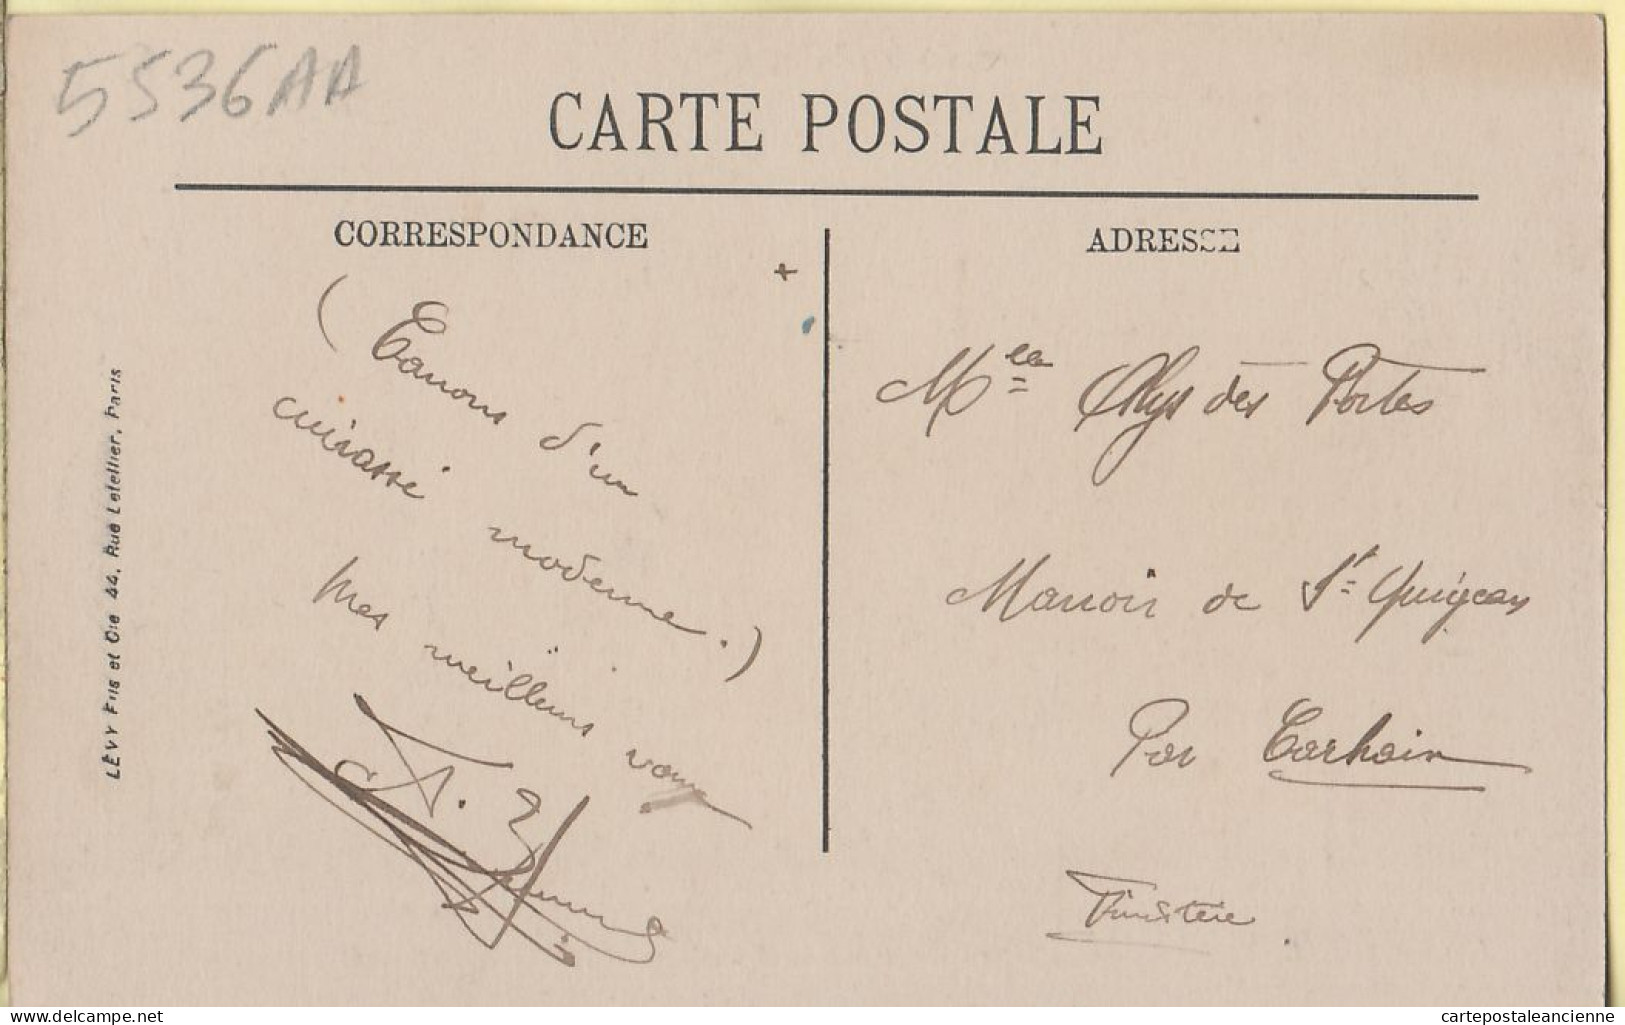 5536AA
CARTE POSTALE
CORRESPONDANCE
(Canons d'un
cuirassé moderne.)
Mes meilleurs vœux
A.
ADRESSE
M^lle Alys des Portes
Manoir de S^t Quigeau
Par Carhaix
Finistère.
LÉVY Fils et Cie 44, Rue Letellier, Paris
www.delcampe.net
cartepostaleancienne